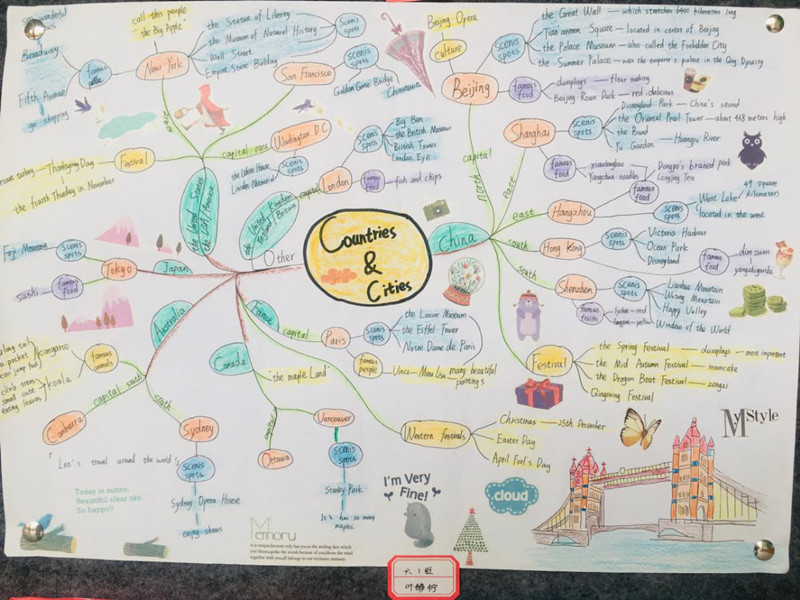 Countries
&
Cities
call this people
"the Big Apple"
New York
famous
Broadway
Fifth Avenue
go shopping
scenis
spots
the Statue of Liberty
the Museum of Natural History
Wall Street
Empire State Building
San Francisco
scenis
spots
Golden Gate Bridge
Chinatown
Washington D.C
capital
scenis
spots
the White House
Festival
Thanksgiving Day
the fourth Thursday in November
the United States
London
capital
scenis
spots
Big Ben
the British Museum
British Tower
London Eye
famous
food
fish and chips
Other
Japan
Tokyo
scenis
spots
Fuji Mountain
famous
food
sushi
Australia
capital
south
Canberra
famous
kangaroo
koala
a pocket
can jump fast
small cute
eating leaves
Sydney
scenis
spots
Sydney Opera House
enjoy shows
Canada
"the maple Land"
Ottawa
Vancouver
scenis
spots
Stanley Park
France
capital
Paris
scenis
spots
the Louvre Museum
the Eiffel Tower
Notre Dame de Paris
famous
people
many beautiful
paintings
Western Festivals
Christmas — 25th December
Easter Day
April Fool's Day
China
north
capital
east
south
south
Beijing
Culture
Beijing Opera
scenis
spots
the Great Wall — which stretches 6400 kilometers long
Tian'anmen Square — located in center of Beijing
the Palace Museum — also called the Forbidden City
the Summer Palace — was the emperor's palace in the Qing Dynasty
famous
food
dumplings — flour making
Beijing Roast Duck — red, delicious
Shanghai
scenis
spots
Disneyland Park — China's second
the Oriental Pearl Tower — about 468 meters high
the Bund
Yu Garden
Huangpu River
famous
food
xiaolongbao
Yangchun noodles
Hangzhou
famous
food
Dongpo's braised pork
Longjing Tea
scenis
spots
West Lake
49 square
kilometers
located in the west
Hong Kong
scenis
spots
Victoria Harbour
Ocean Park
Disneyland
famous
food
dim sum
Shenzhen
scenis
spots
Lianhua Mountain
Wutong Mountain
Happy Valley
Window of the World
famous
fruits
lychee — red
longan — yellow
Festival
the Spring Festival — dumplings — most important
the Mid Autumn Festival — mooncake
the Dragon Boat Festival — zongzi
Qingming Festival
"Leo's travel around the world"
Today is sunny.
Beautiful clear sky.
So happy!!
Memory
I'm Very
Fine!
cloud
My Style
六1班